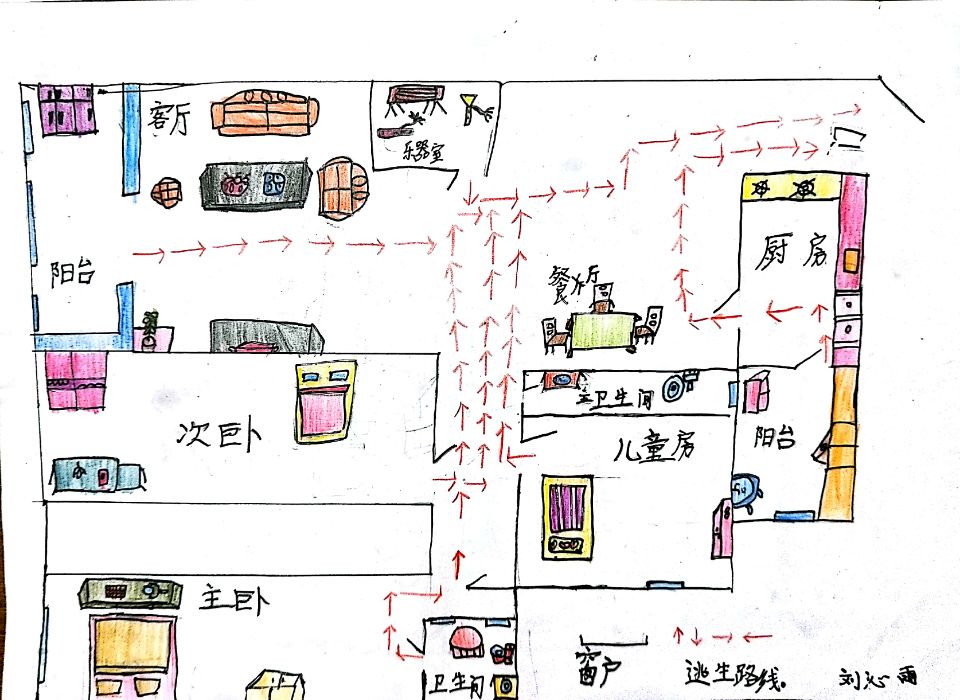 客厅
乐器室
阳台
厨房
餐厅
主卫生间
次卧
儿童房
阳台
主卧
卫生间
窗户
逃生路线。
刘沁雨